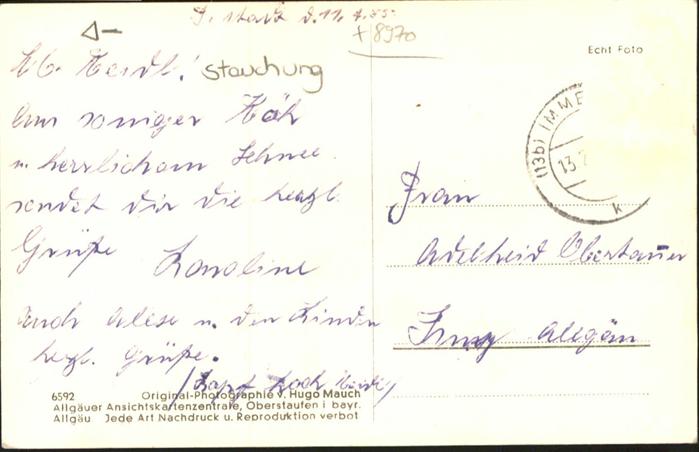 d. 11.
+8970
Stauchung
Echt Foto
(13b) IMME
13.
k
sonniger Höh
u. herrlichem Schnee
sendet dir die herzl.
Grüße Karoline
Auch u. den Kinder
herzl. Grüße.
Frau
Adelheid Obertauer
Isny Allgäu
6592 Original-Photographie v. Hugo Mauch
Allgäuer Ansichtskartenzentrale, Oberstaufen i bayr.
Allgäu Jede Art Nachdruck u. Reproduktion verbot